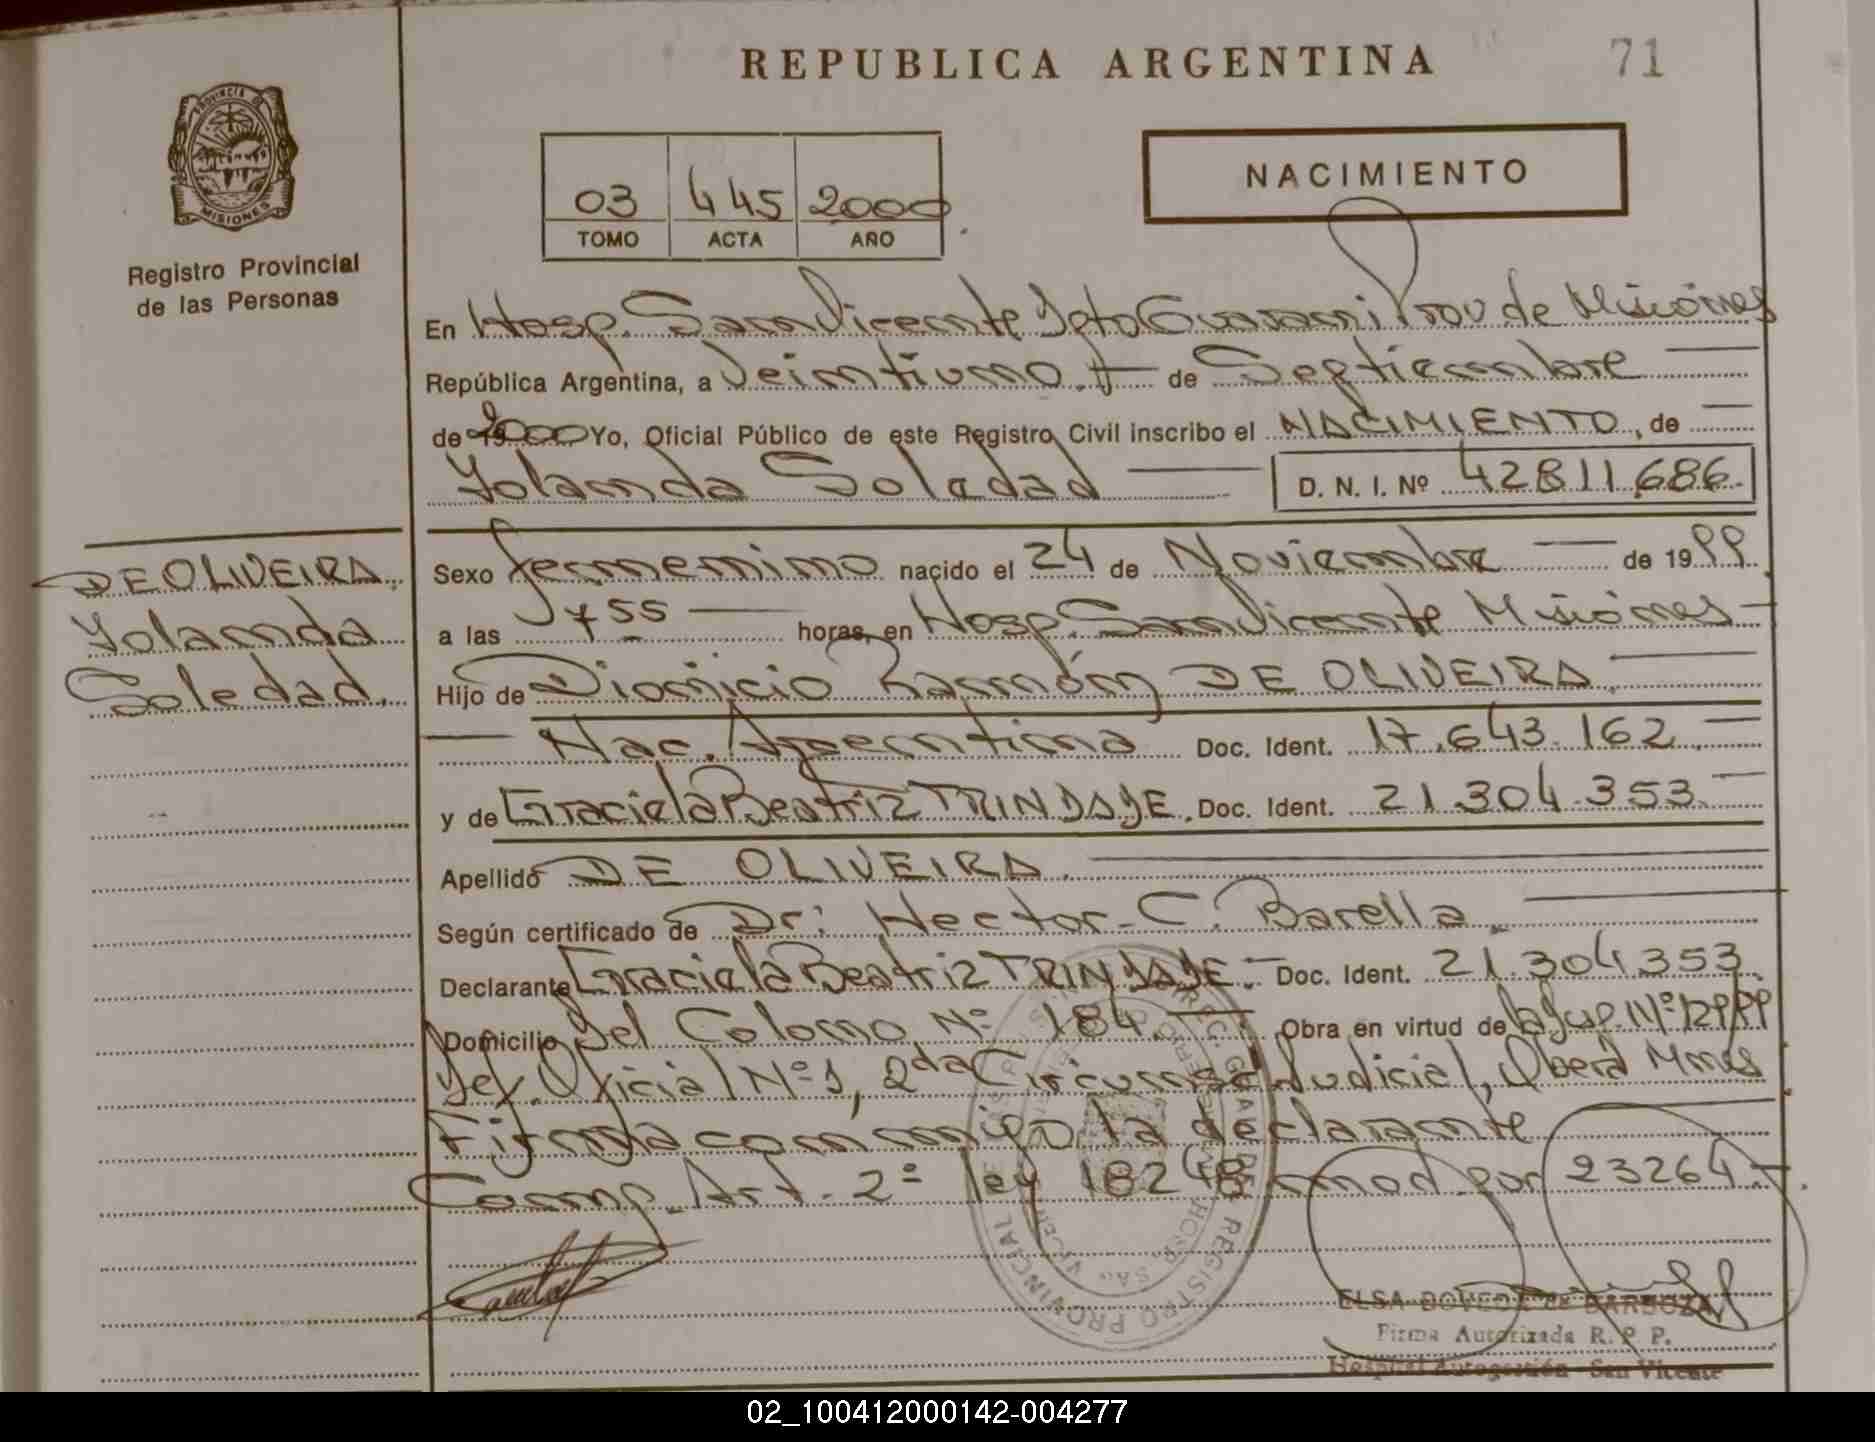 REPUBLICA ARGENTINA
71
PROVINCIA DE
MISIONES
Registro Provincial
de las Personas
03 445 2000
TOMO ACTA AÑO
NACIMIENTO
En Hosp. San Vicente Dpto Guarani Prov de Misiónes
República Argentina, a Veintiuno de Septiembre
de 2000 Yo, Oficial Público de este Registro Civil inscribo el NACIMIENTO, de
Yolanda Soledad D. N. I. Nº 42811686.
DE OLIVEIRA.
Yolanda
Soledad.
Sexo femenino nacido el 24 de Noviembre de 1999.
a las 755 horas, en Hosp. San Vicente Misiónes
Hijo de Dionicio Ramón DE OLIVEIRA.
Nac. Argentina Doc. Ident. 17.643.162
y de Graciela Beatriz TRINDADE. Doc. Ident. 21.304.353
Apellido DE OLIVEIRA.
Según certificado de Dr: Hector C. Barella
Declarante Graciela Beatriz TRINDADE. Doc. Ident. 21.304.353
Domicilio Del Colono Nº 184 Obra en virtud de
Def. Oficial Nº 1, 2da Circunsc. Judicial, Oberá Mnes
Firma conmigo la declarante
Comp. Art. 2º ley 18248 mod por 23264
REGISTRO PROVINCIAL
ELSA DE BARBOZA
Firma Autorizada R. P. P.
Hospital Autogestión San Vicente
02_100412000142-004277